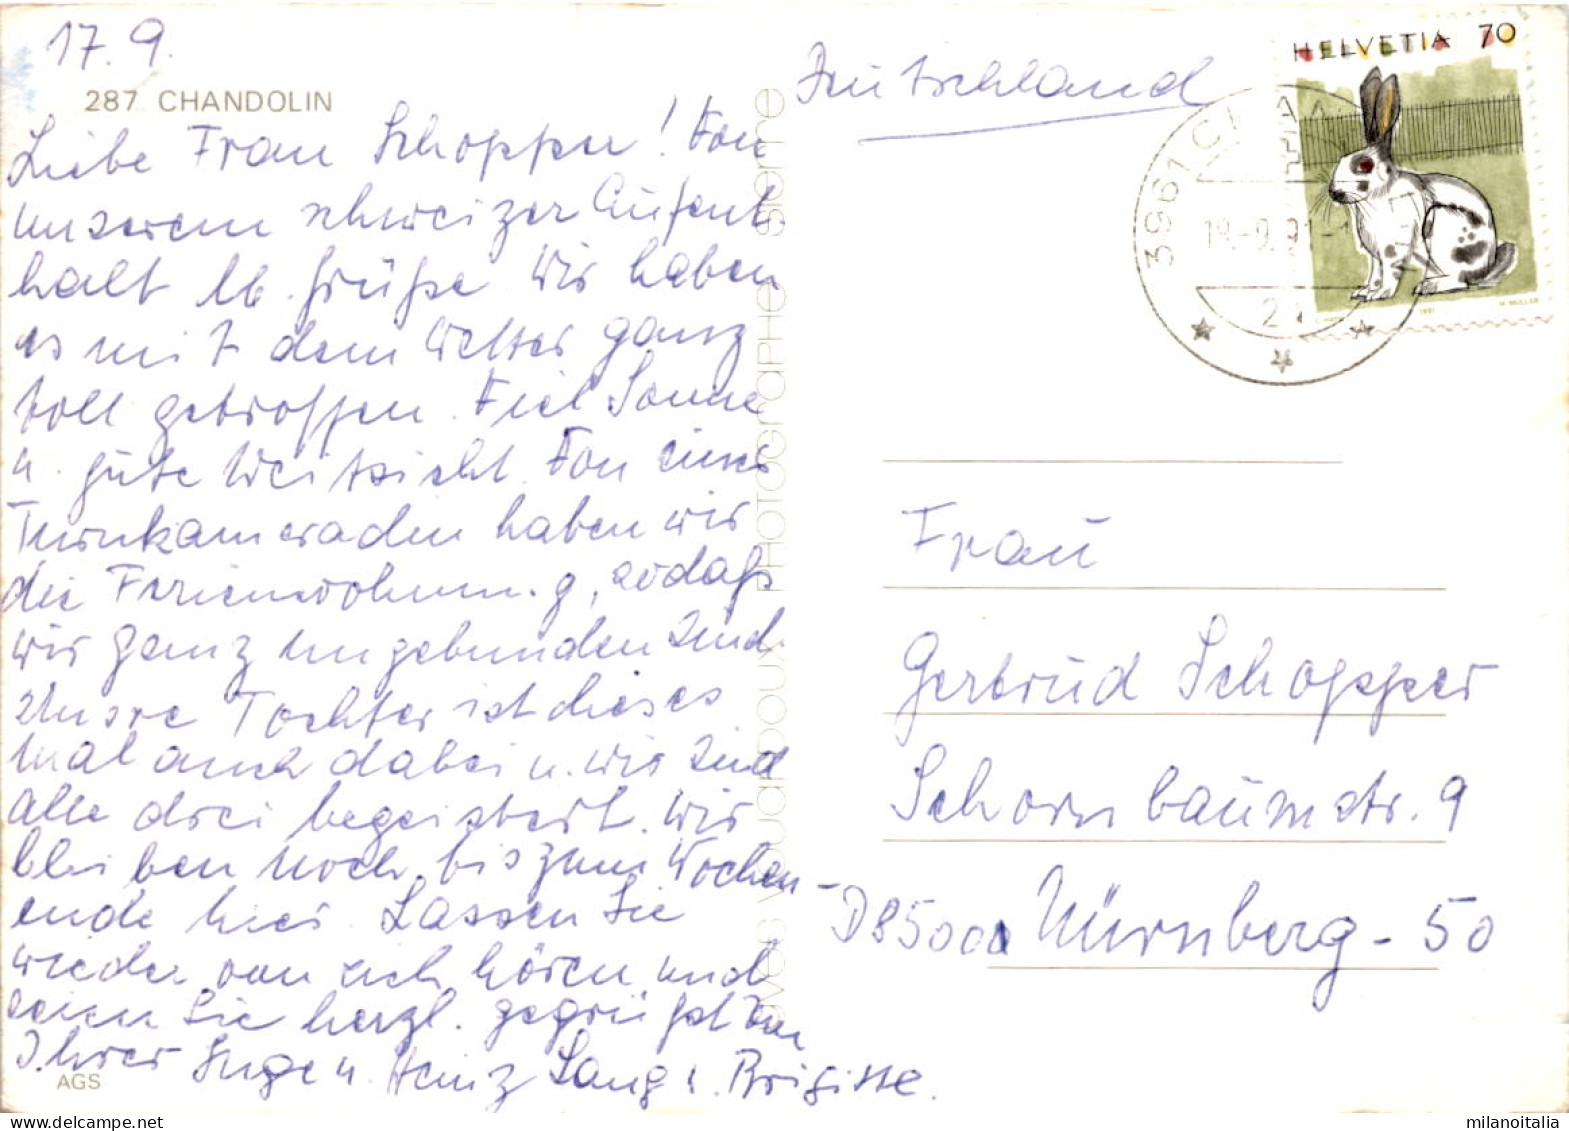 17.9.
287 CHANDOLIN
Liebe Frau Schopper! Von
unserem schweizer Aufent
halt lb. Grüße. Wir haben
es mit dem Wetter ganz
toll getroffen. Viel Sonne
u. gute Weitsicht. Von einer
Turnkameradin haben wir
die Ferienwohnung, sodaß
wir ganz ungebunden sind
Unsre Tochter ist dieses
mal auch dabei u. wir sind
alle drei begeistert. Wir
bleiben noch bis zum Wochen-
ende hier. Lassen Sie
wieder von sich hören und
seien Sie herzl. gegrüßt von
Ihrer Inge u. Heinz Lang u. Brigitte.
AGS
PHOTOGRAPHE Sierre
Deutschland
HELVETIA 70
3961 CHA
18.-9.91-1
1991
H. MÜLLER
Frau
Gertrud Schopper
Schornbaumstr. 9
D 8500 Nürnberg - 50
milanoitalia